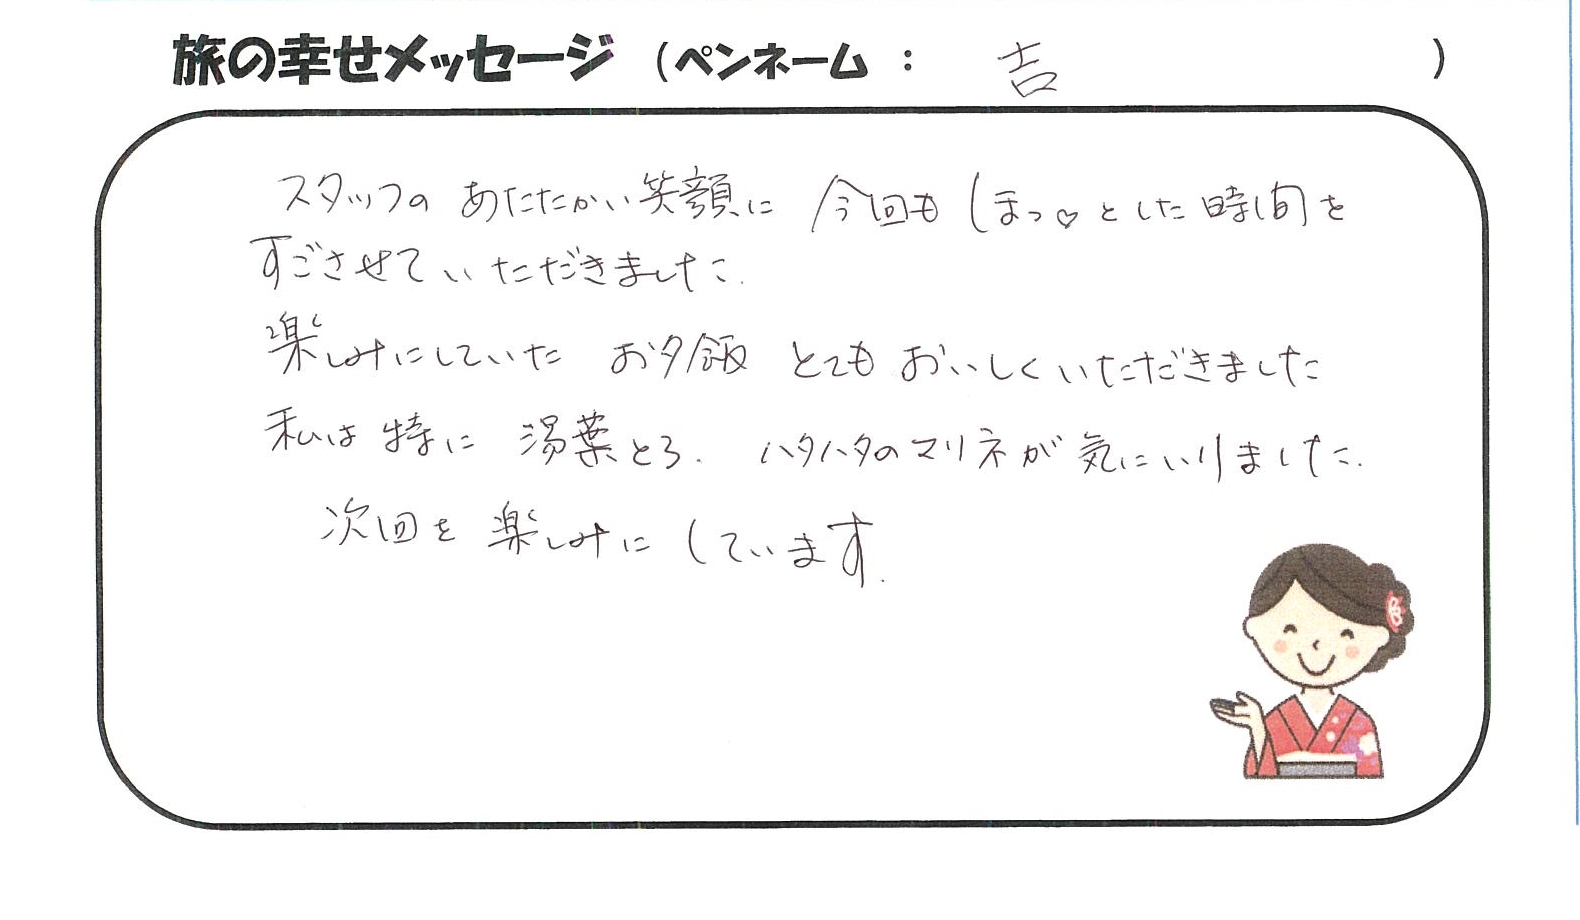 旅の幸せメッセージ (ペンネーム : 吉 )
スタッフの あたたかい笑顔に 今回も ほっ♡とした時間を
すごさせていただきました.
楽しみにしていた お夕飯 とても おいしくいただきました
私は 特に 湯葉とろ. ハタハタのマリネが 気にいりました.
次回を 楽しみに しています.